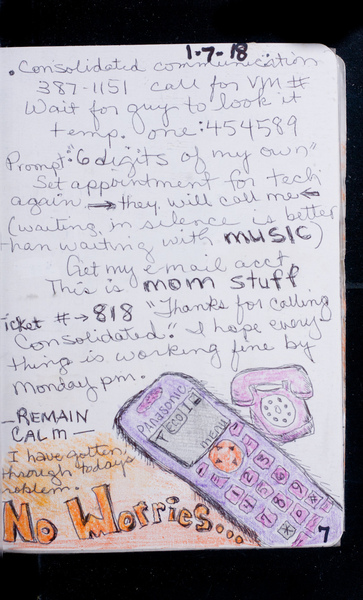 1-7-18
• Consolidated communication
387-1151 call for VM #
Wait for guy to look it
temp. one: 454589
Prompt: "6 digits of my own"
Set appointment for tech
again → they will call me ←
(waiting in silence is better
than waiting with music)
Get my email acct.
This is mom stuff
Ticket # → 818 "Thanks for calling
Consolidated." I hope every-
thing is working fine by
Monday pm.
—REMAIN
CALM—
I have gotten
through today's
problem.
No Worries...
Panasonic
menu
7